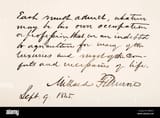 Each must admit, whatever
may be his own occupation
or profession that we are indebted
to agriculture for many of the
luxuries and most of the com-
forts and necessaries of life.
Millard Fillmore
Sept. 9. 1865
alamy